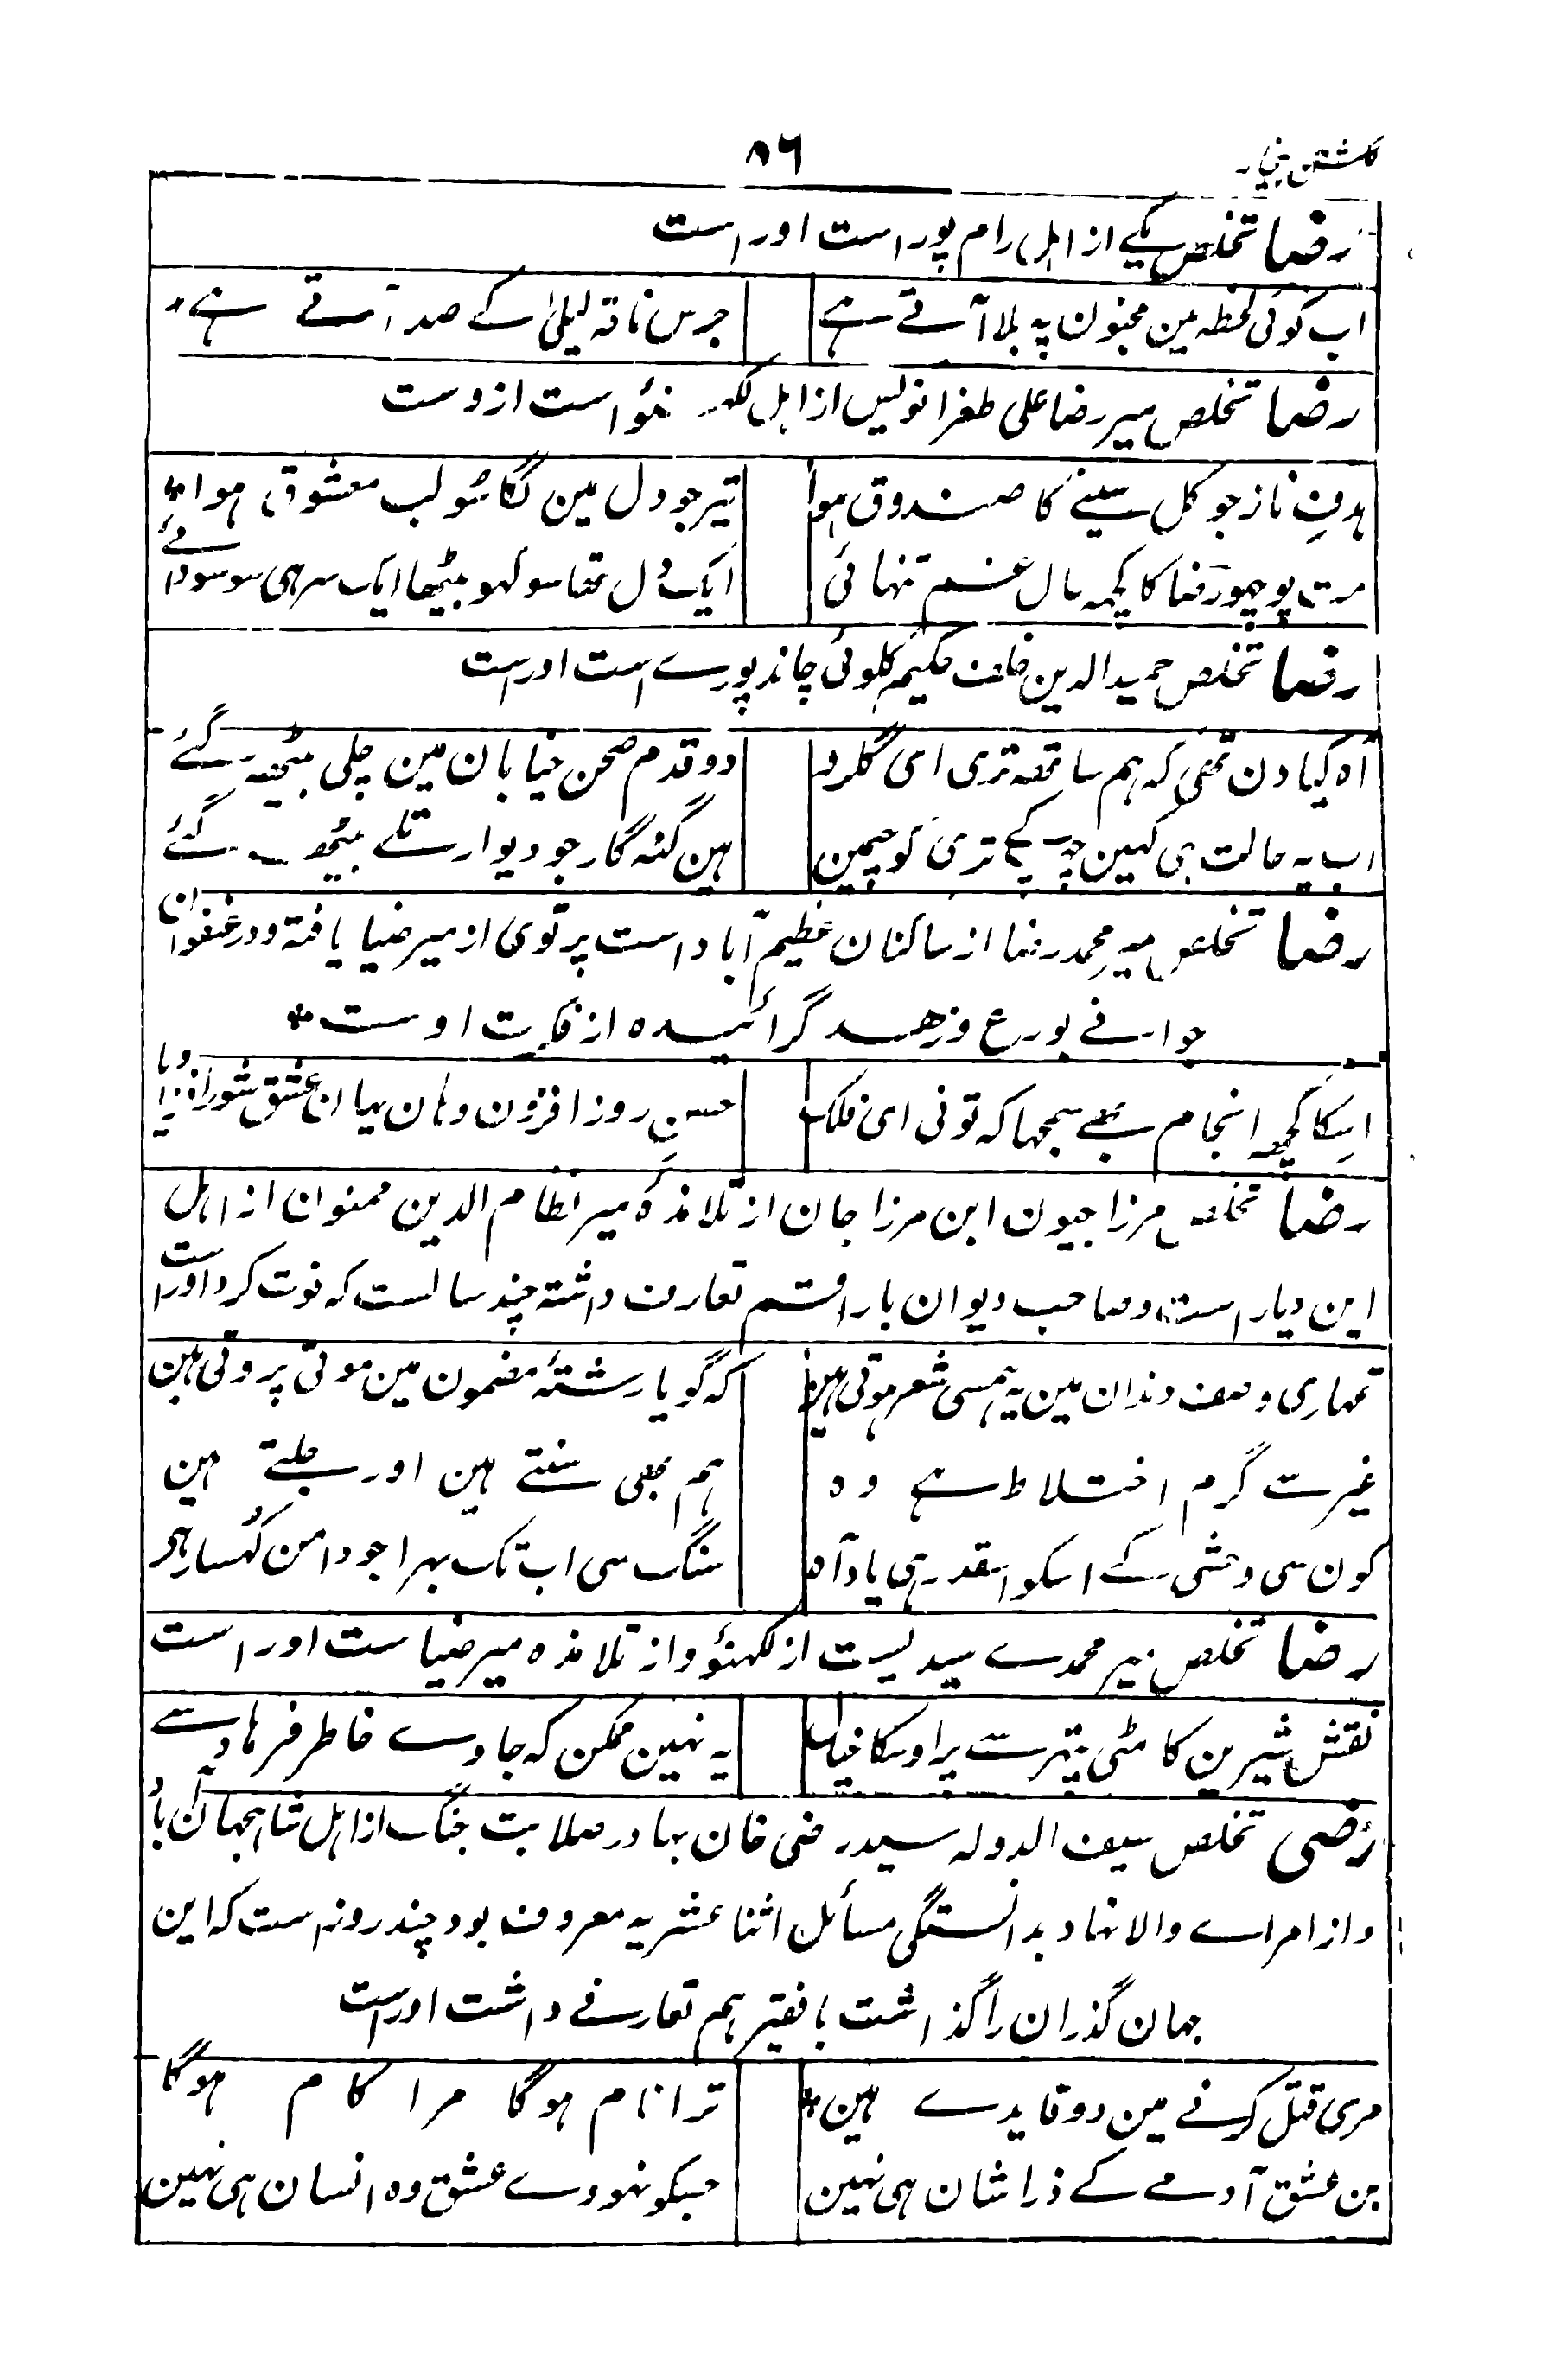 گلشن بیخار
۸۶
رضا تخلص یکے از اہل رام پور است اوراست
اب کوئی لحظہ مین مجنون پہ بلا آتے ہے
جرس ناقہ لیلیٰ کے صدا آتے ہے
رضا تخلص میر رضا علی طغرا نویس از اہل لکھنؤ است ازوست
ہدفِ ناز جو کل سینے کا صندوق ہوا
تیر جو دل مین لگا سو لب معشوق ہوا
مت پوچھو رضا کا کچہ حال غم تنہائی
ایک دل تھا سو لہو بیٹھا ایک سر ہی سو سودائے
رضا تخلص حمید الدین خلف حکیم کلوئی چاند پورے است اوراست
آہ کیا دن تھی کہ ہم ساتھہ تری ای گلرو
دو قدم صحن خیابان مین چلی بیٹھہ گئے
اب یہ حالت ہی کہین چہپ کے تری کوچہمین
ہین گنہ گار جو دیوار تلے بیٹھہ گئے
رضا تخلص میر محمد رضا از ساکنان عظیم آباد است پرتوی از میر ضیا یافتہ و در عنفوان
جوانے بورع و زہد گرائیدہ از فکرت اوست
اسکا کچھہ انجام بھے سمجہا کہ تو نی ای فلک
حسن روز افزون وہان یہان عشق شور افزا دیا
رضا تخلص مرزا جیون ابن مرزا جان از تلامذہ میر نظام الدین ممنوان از اہل
این دیار است و صاحب دیوان با راقم تعارف داشتہ چند سالست کہ فوت کرد اوراست
تمہاری وصف دندان مین یہ ہمسی شعر ہوتی ہین
کہ گویا رشتۂ مضمون مین موتی پروتی ہین
غیر ست گرم اختلاط ہے وہ
ہم بھی سنتے ہین اور جلتے ہین
کون سی وحشی کے اسکو اسقدر ہی یاد آہ
سنگ سی اب تک بہرا جو دامن کُہسار ہی
رضا تخلص میر محمدے سیدیست از لکھنؤ و از تلامذہ میر ضیاست اوراست
نقش شیرین کا مٹی پتہر سے پر اوسکا خیال
یہ نہین ممکن کہ جاوے خاطر فرہاد سے
رضی تخلص سیف الدولہ سید رضی خان بہادر صلابت جنگ از اہل شاہجہان آباد
و از امراے والا نہاد بدانستگی مسائل اثنا عشریہ معروف بود چند روز است کہ این
جہان گذران را گذاشت با فقیر ہم تعارفے داشت اوراست
مری قتل کرنے مین دو فایدے ہین
ترا نام ہوگا مرا کام ہوگا
بن عشق آدمے کے ذرا شان ہی نہین
جسکو نہووے عشق وہ انسان ہی نہین